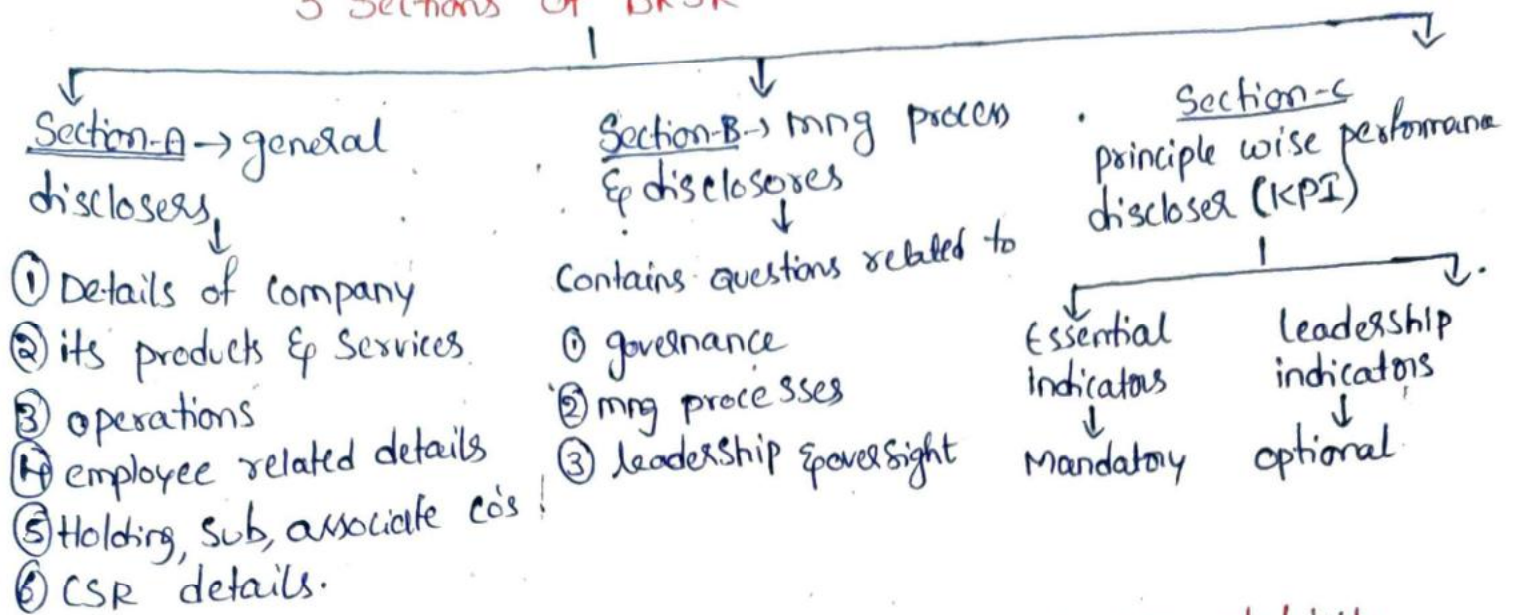 3 Sections of BRSR
Section-A → general
disclosers
① Details of company
② its products & Services
③ operations
④ employee related details
⑤ Holding, Sub, associate co's
⑥ CSR details.
Section-B → mng process
& disclosores
Contains questions related to
① governance
② mng processes
③ leadership & oversight
Section-C
principle wise performance
discloser (KPI)
Essential
Indicators
Mandatory
leadership
indicators
optional